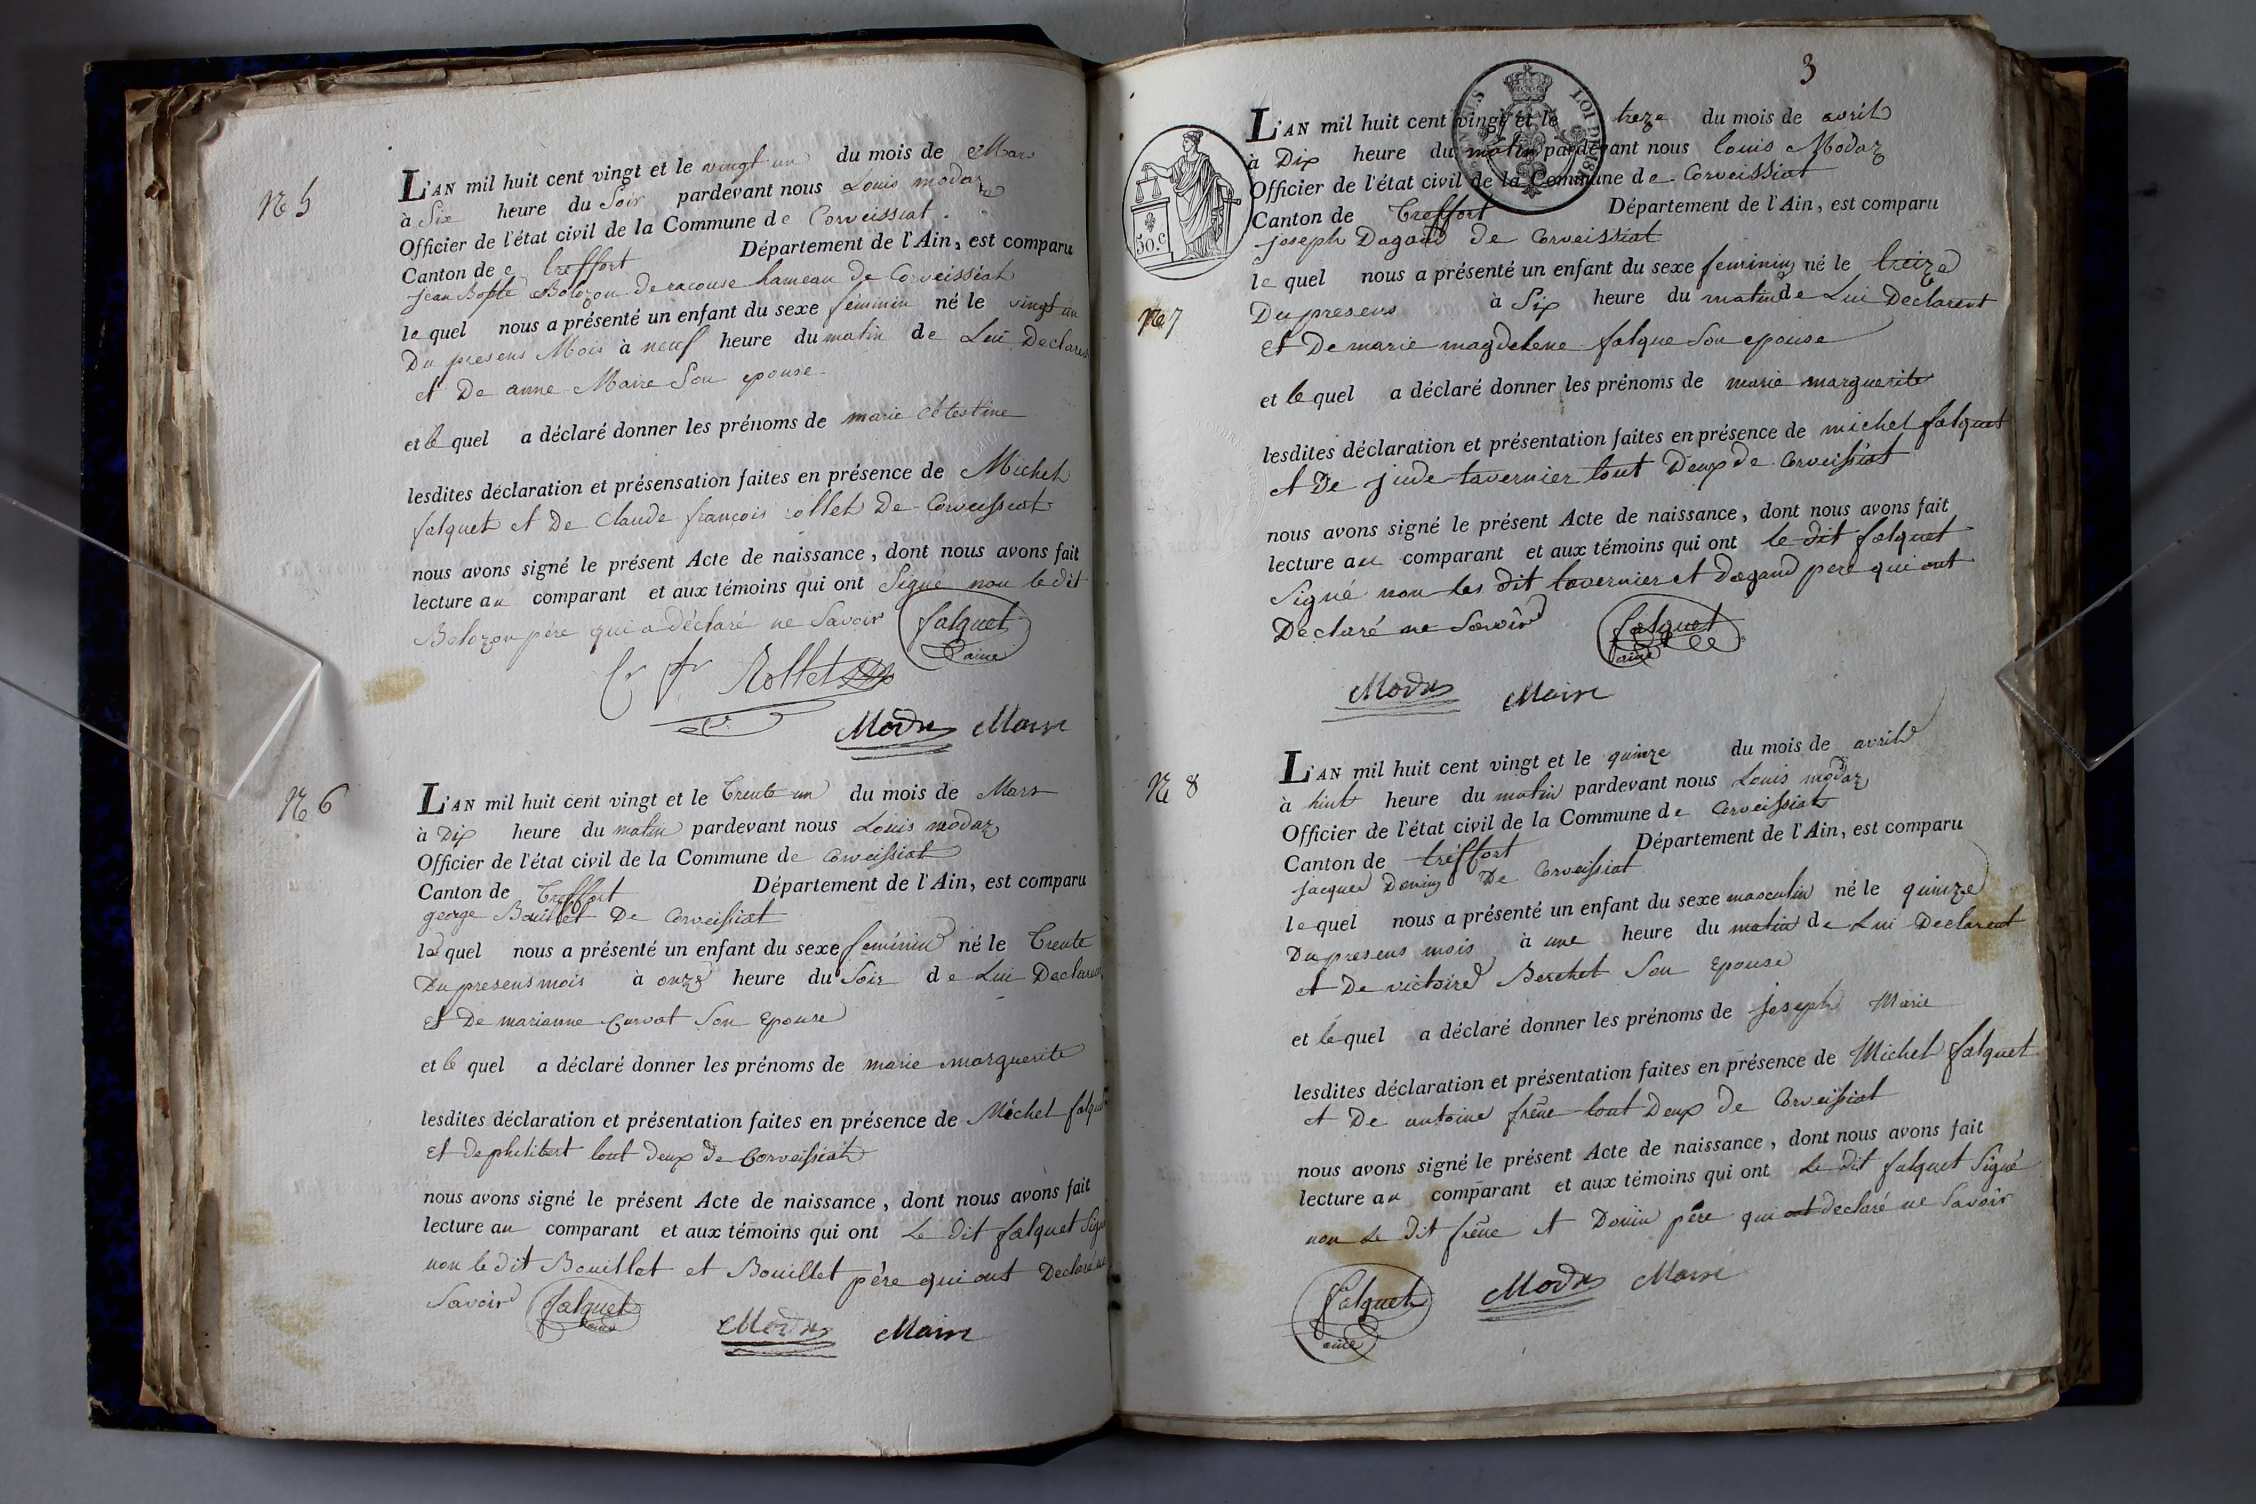 Nº 5
L'AN mil huit cent vingt et le vingt un du mois de Mars
à Six heure du Soir pardevant nous Louis modaz
Officier de l'état civil de la Commune de Corveissiat
Canton de treffort Département de l'Ain, est comparu
jean Bapte Bolozon de racouse hameau de Corveissiat
le quel nous a présenté un enfant du sexe féminin né le vingt un
Du presens Mois à neuf heure du matin de Lui Declarent
et De anne Maire Son epouse
et le quel a déclaré donner les prénoms de marie Célestine
lesdites déclaration et présensation faites en présence de Michel
falquet et De Claude françois rollet De Corveissiat
nous avons signé le présent Acte de naissance, dont nous avons fait
lecture au comparant et aux témoins qui ont Signé non le dit
Bolozon père qui a déclaré ne Savoir falquet
ainé
Rollet
Modas Maire
Nº 6
L'AN mil huit cent vingt et le Trente un du mois de Mars
à Dix heure du matin pardevant nous Louis modaz
Officier de l'état civil de la Commune de Corveissiat
Canton de Treffort Département de l'Ain, est comparu
george Bouillet De Corveissiat
le quel nous a présenté un enfant du sexe feminin né le Trente
Du presens mois à onze heure du Soir de Lui Declarent
Et De marianne Curvat Son Epouse
et le quel a déclaré donner les prénoms de marie marguerite
lesdites déclaration et présentation faites en présence de Michel falquet
Et de philibert tout deux de Corveissiat
nous avons signé le présent Acte de naissance, dont nous avons fait
lecture au comparant et aux témoins qui ont Le dit falquet Signé
non le dit Bouillet et Bouillet père qui ont Declaré ne
Savoir falquet
ainé
Modas Maire
3
LOI DE
50.c
Nº 7
L'AN mil huit cent vingt et le treze du mois de avril
à Dix heure du matin pardevant nous louis Modaz
Officier de l'état civil de la Commune de Corveissiat
Canton de Treffort Département de l'Ain, est comparu
joseph Dagand de Corveissiat
le quel nous a présenté un enfant du sexe feminin né le treize
Du presens à Six heure du matin de Lui Declarent
Et De marie magdelene falque Son epouse
et le quel a déclaré donner les prénoms de marie marguerite
lesdites déclaration et présentation faites en présence de michel falquet
et De jude tavernier tout Deux de Corveissiat
nous avons signé le présent Acte de naissance, dont nous avons fait
lecture au comparant et aux témoins qui ont le dit falquet
Signé non les dit tavernier et Dagand pere qui ont
Declaré ne Savoir falquet
ainé
Modas Maire
Nº 8
L'AN mil huit cent vingt et le quinze du mois de avril
à huit heure du matin pardevant nous Louis modaz
Officier de l'état civil de la Commune de Corveissiat
Canton de tréffort Département de l'Ain, est comparu
jacques Donin De Corveissiat
le quel nous a présenté un enfant du sexe masculin né le quinze
Du presens mois à une heure du matin de Lui Declarent
et De victoire Berchet Son Epouse
et le quel a déclaré donner les prénoms de joseph Marie
lesdites déclaration et présentation faites en présence de Michel falquet
et De antoine frêne tout Deux de Corveissiat
nous avons signé le présent Acte de naissance, dont nous avons fait
lecture au comparant et aux témoins qui ont Le dit falquet Signé
non Le Dit frêne et Donin père qui ont declaré ne Savoir
falquet
ainé
Modas Maire